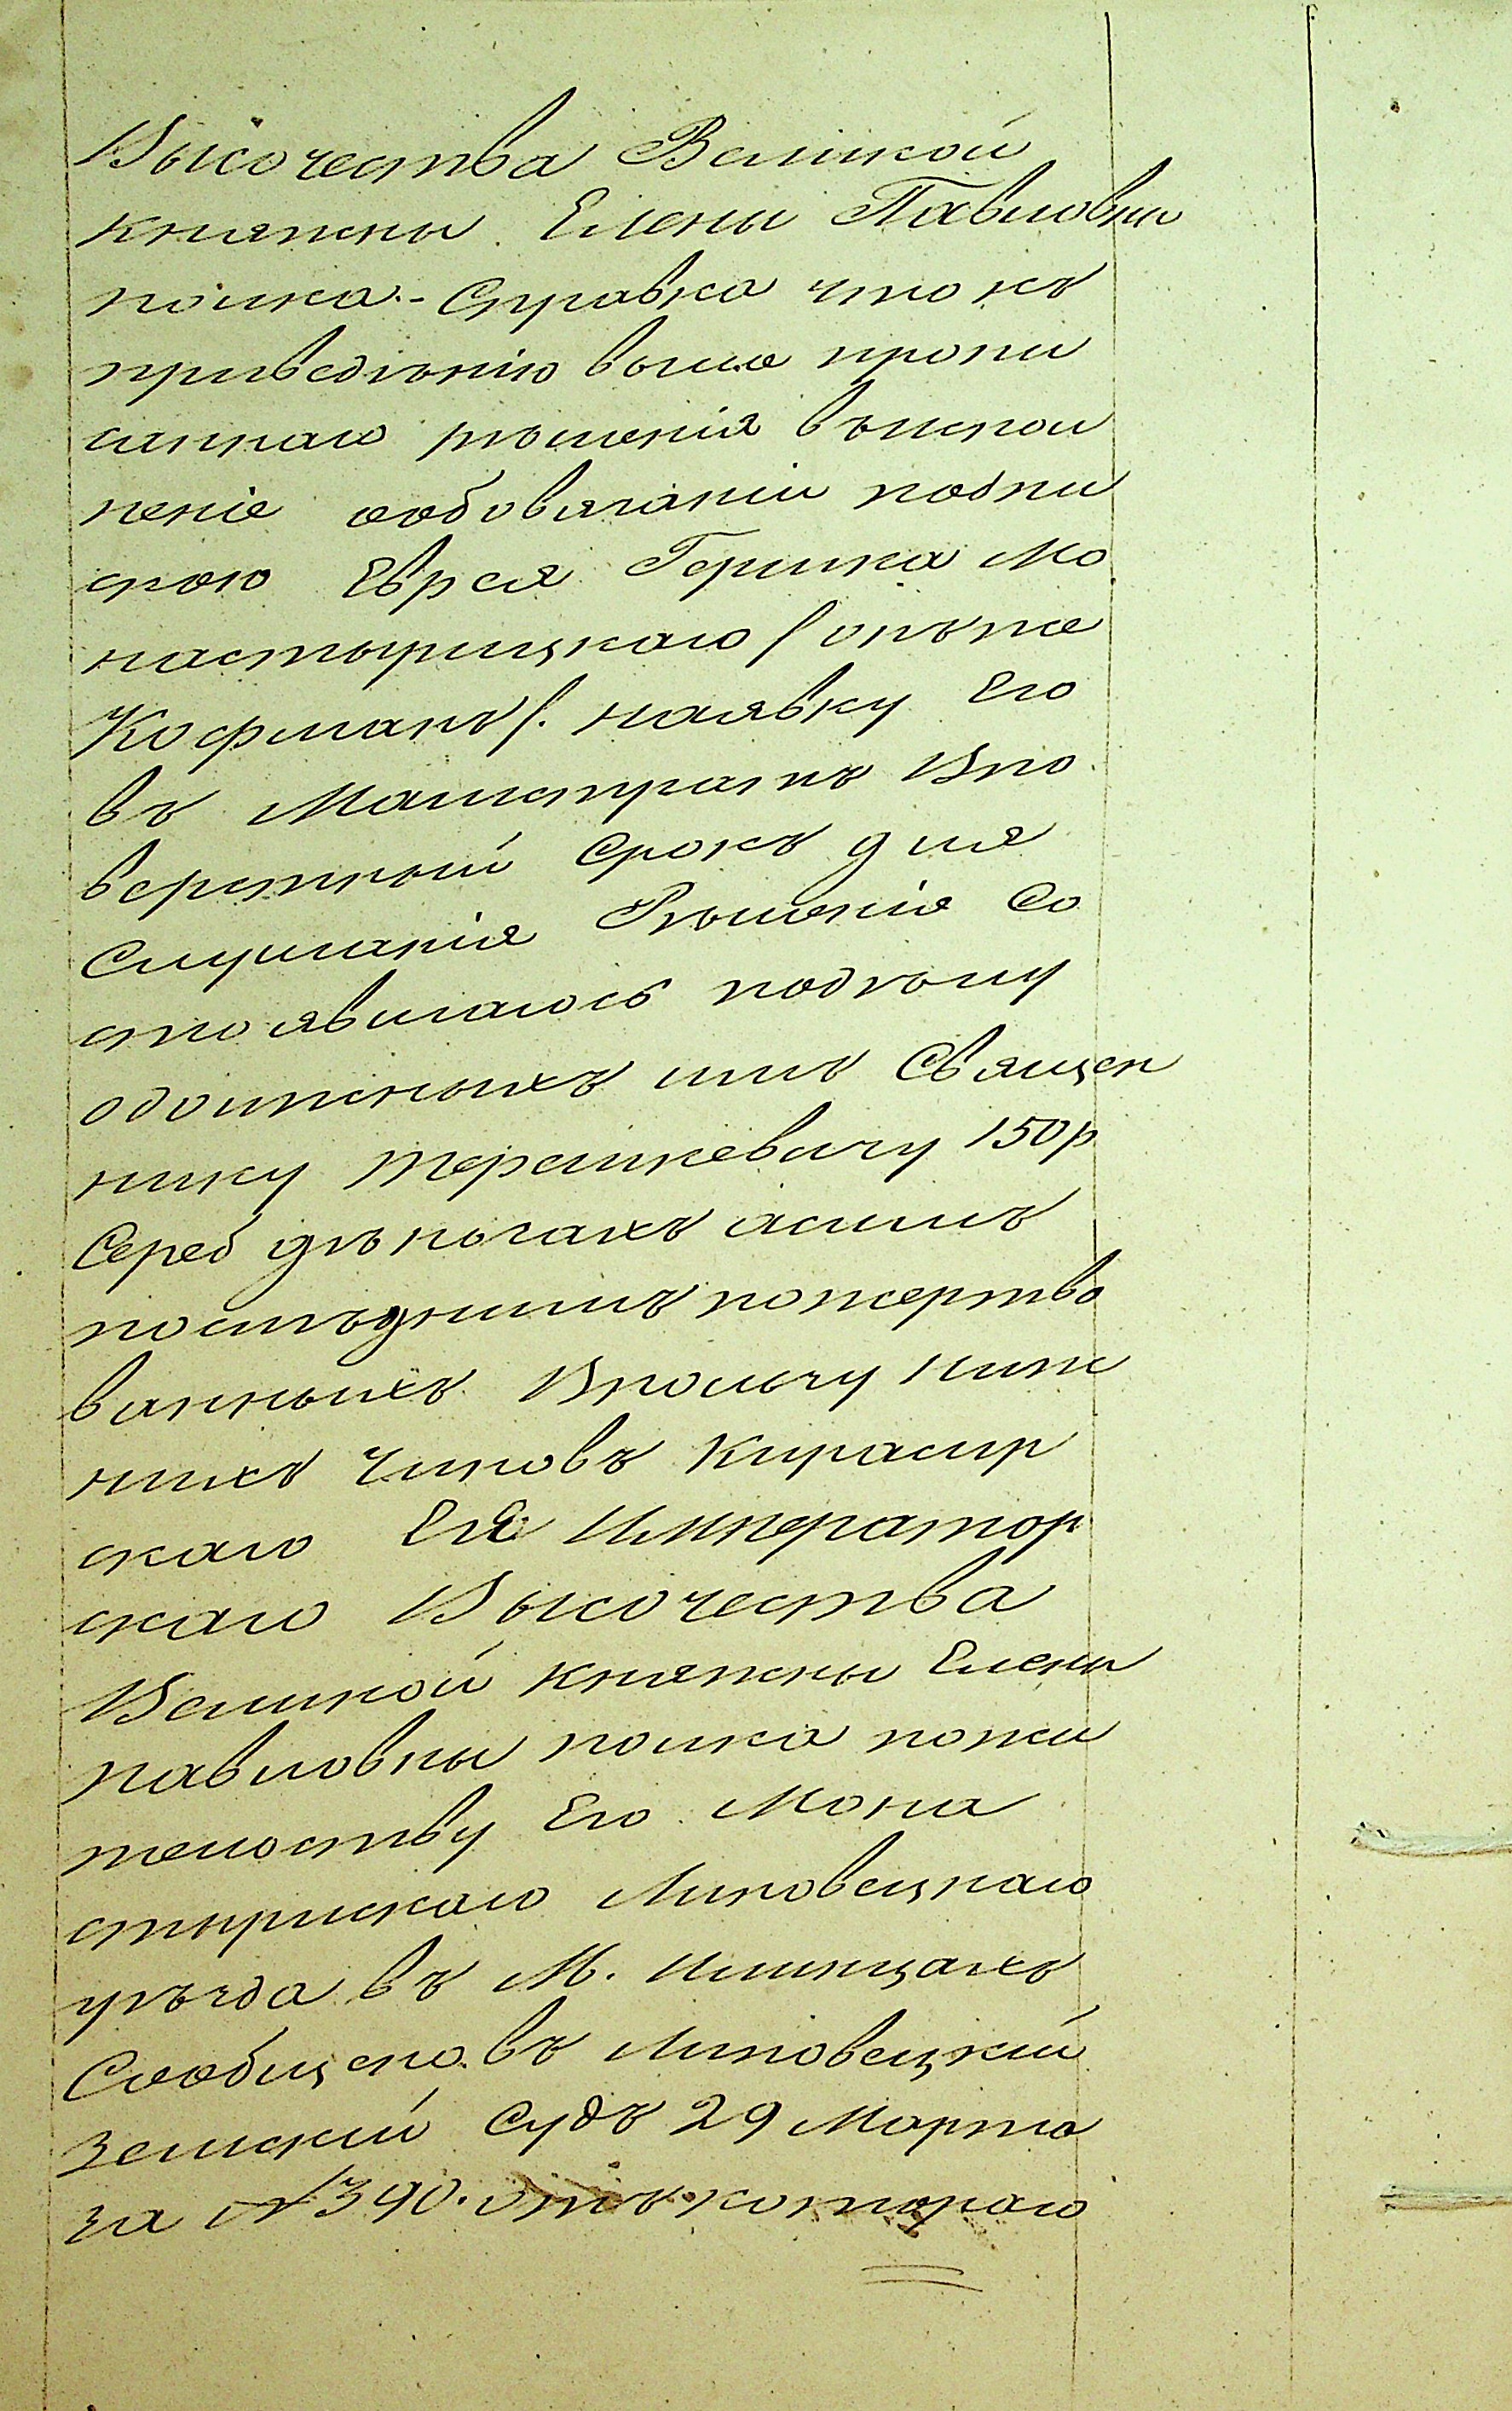 Высочества Великой
княжны Елены Павловны
полка.- Справка что къ
приведѣнію выше пропи
саннаго рѣшенія въ испол
неніе ообовязаніи подпи
скою Еврея Гершка Мо
настырицкаго /: онъ же
Кофманъ /: наявку Его
въ Магистратъ Впо
верстный Срокъ для
Слушанія Рѣшенія Со
стоявшагося подѣлу
одолжныхъ имъ Священ
нику Терашкевичу 150 р
Сереб дѣньгахъ асимъ
послѣднимъ пожертво
ванныхъ Впользу ниж
нихъ Чиновъ Кирасир
скаго Ея Император
скаго Высочества
Великой Княжны Елены
павловны полка пожи
тельству Его Мона
стырискаго Липовецкаго
уѣзда въ М. Илинцахъ
Сообщено въ Липовецкій
Земскій Судъ 29 Марта
за № 390. отъ котораго